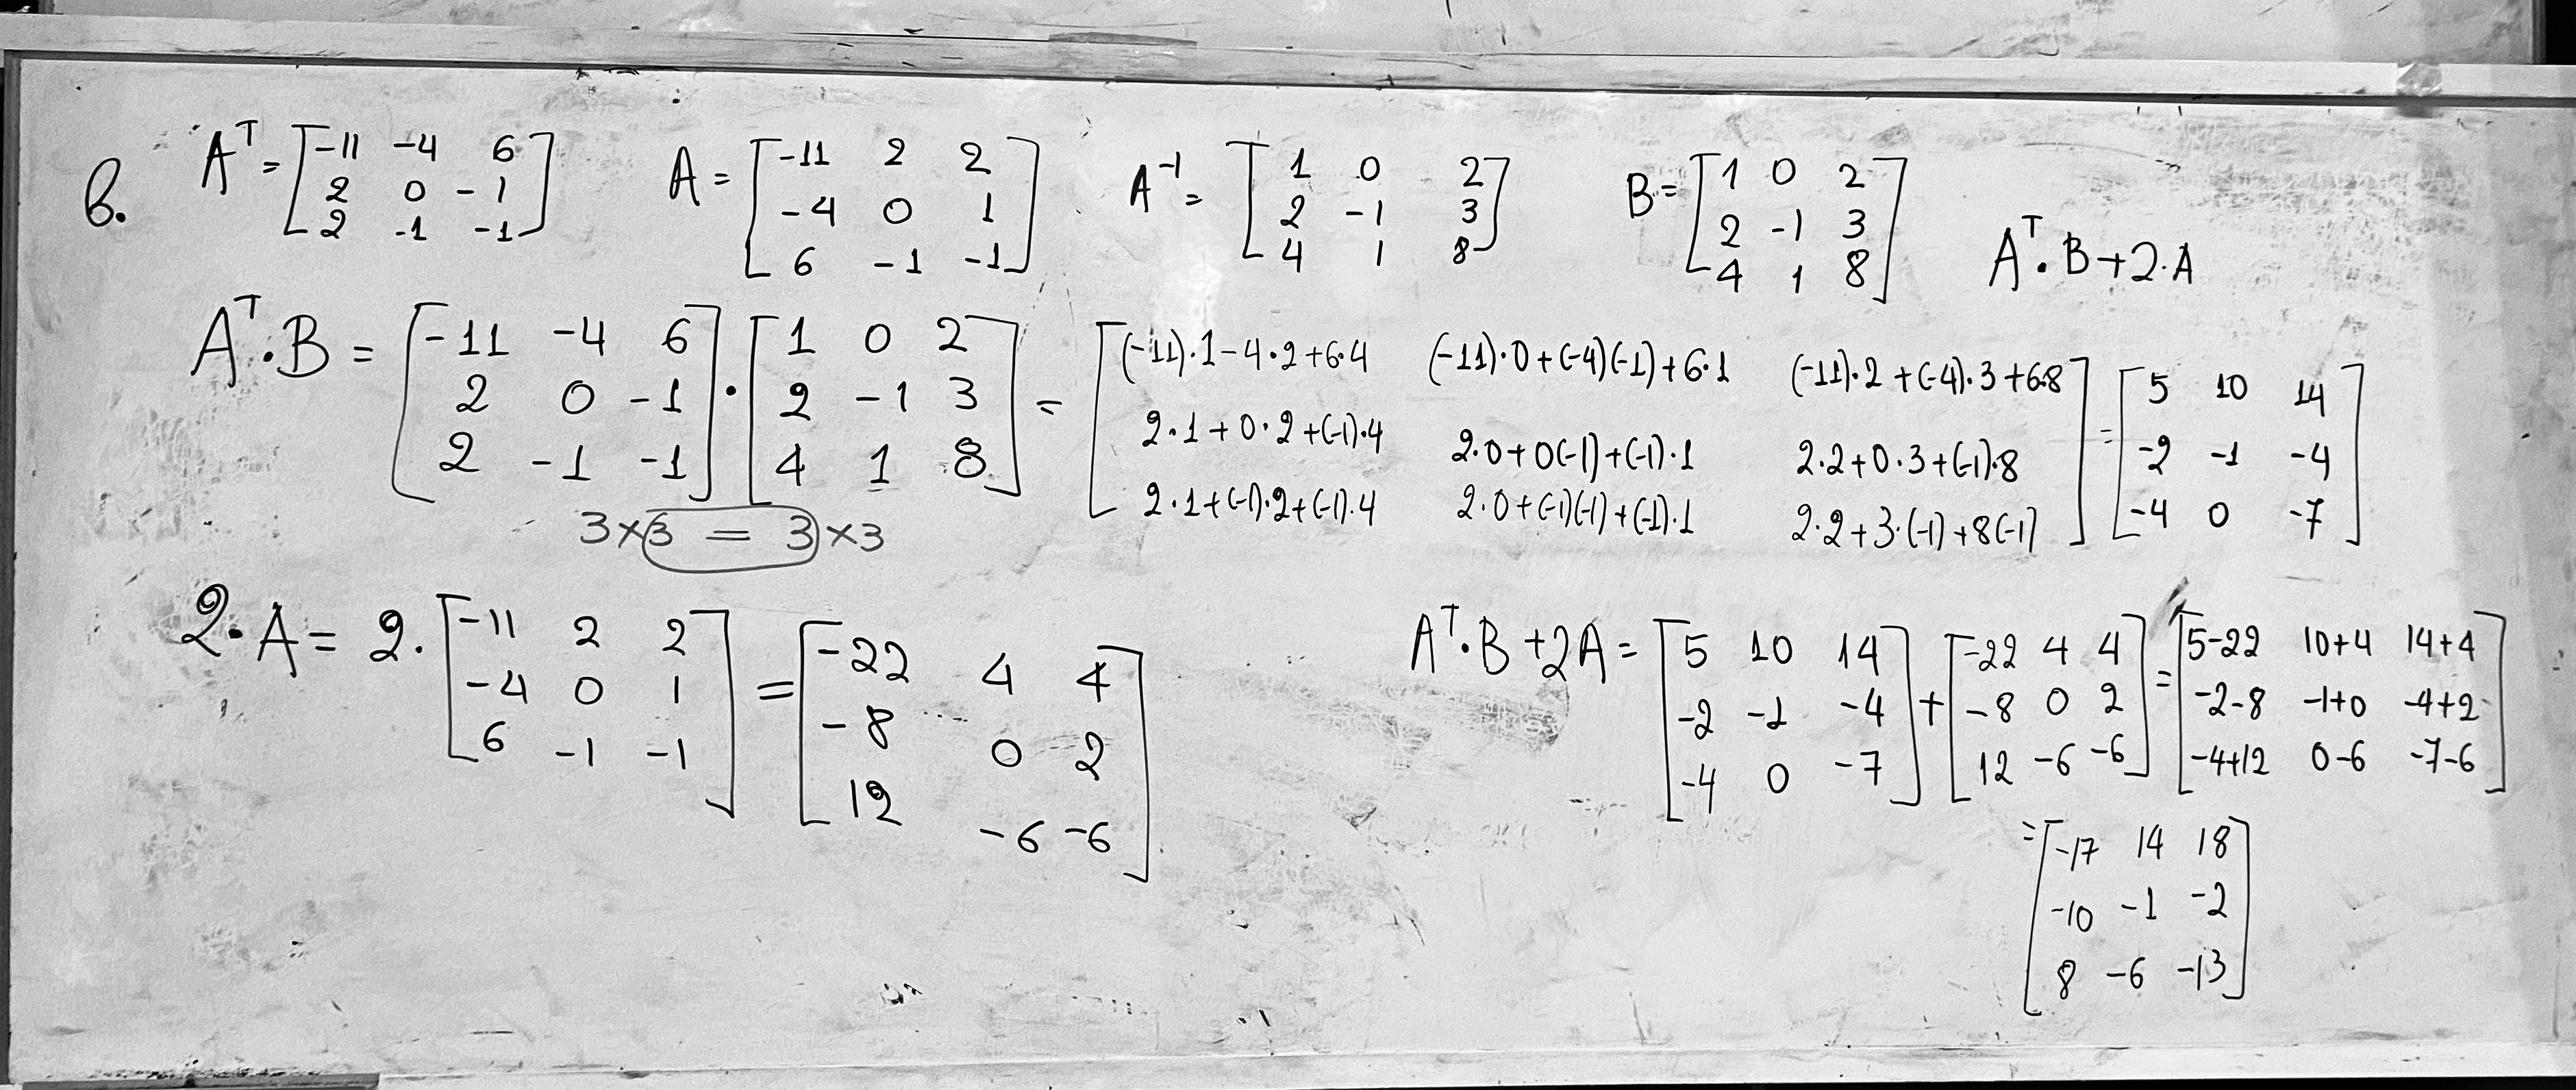 b. A^T = [-11 -4 6; 2 0 -1; 2 -1 -1] A = [-11 2 2; -4 0 1; 6 -1 -1] A^-1 = [1 0 2; 2 -1 3; 4 1 8] B = [1 0 2; 2 -1 3; 4 1 8] A^T · B + 2 · A
A^T · B = [-11 -4 6; 2 0 -1; 2 -1 -1] · [1 0 2; 2 -1 3; 4 1 8] = [(-11)·1-4·2+6·4 (-11)·0+(-4)(-1)+6·1 (-11)·2+(-4)·3+6·8; 2·1+0·2+(-1)·4 2·0+0(-1)+(-1)·1 2·2+0·3+(-1)·8; 2·1+(-1)·2+(-1)·4 2·0+(-1)(-1)+(-1)·1 2·2+3·(-1)+8(-1)] = [5 10 14; -2 -1 -4; -4 0 -7]
3×3 = 3×3
2·A = 2·[-11 2 2; -4 0 1; 6 -1 -1] = [-22 4 4; -8 0 2; 12 -6 -6]
A^T · B + 2A = [5 10 14; -2 -1 -4; -4 0 -7] + [-22 4 4; -8 0 2; 12 -6 -6] = [5-22 10+4 14+4; -2-8 -1+0 -4+2; -4+12 0-6 -7-6]
= [-17 14 18; -10 -1 -2; 8 -6 -13]